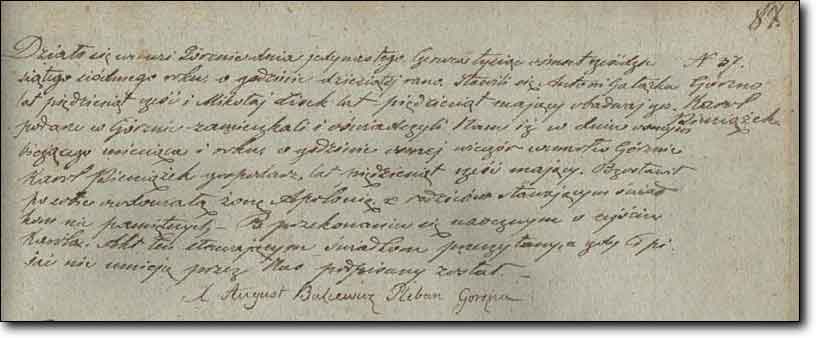 87.
Działo się we wsi Górznie dnia jedynastego Czerwca tysiąc ośmset sześćdzie
siątego siódmego roku, o godzinie dziesiątej rano. Stawili się Antoni Gałązka
lat pięćdziesiąt sześć i Mikołaj Lisek lat pięćdziesiąt mający obadwaj go
podarze w Górznie zamieszkali i oświadczyli Nam iż w dniu
bieżącego miesiąca i roku, o godzinie wieczór umarł w Górznie
Karol Pieniążek gospodarz, lat pięćdziesiąt sześć mający. Pozostawił
po sobie owdowiałą żonę Apolonię z rodziców stawającym świad
kom nie pamiętnych. – Po przekonaniu się naocznym o zejściu
Karola, Akt ten stawającym świadkom przeczytany, a gdy Ci pi
sać nie umieją przez Nas podpisany został. –
X August Plebań Górzna
N 37.
Górzno
Karol
Pieniążek